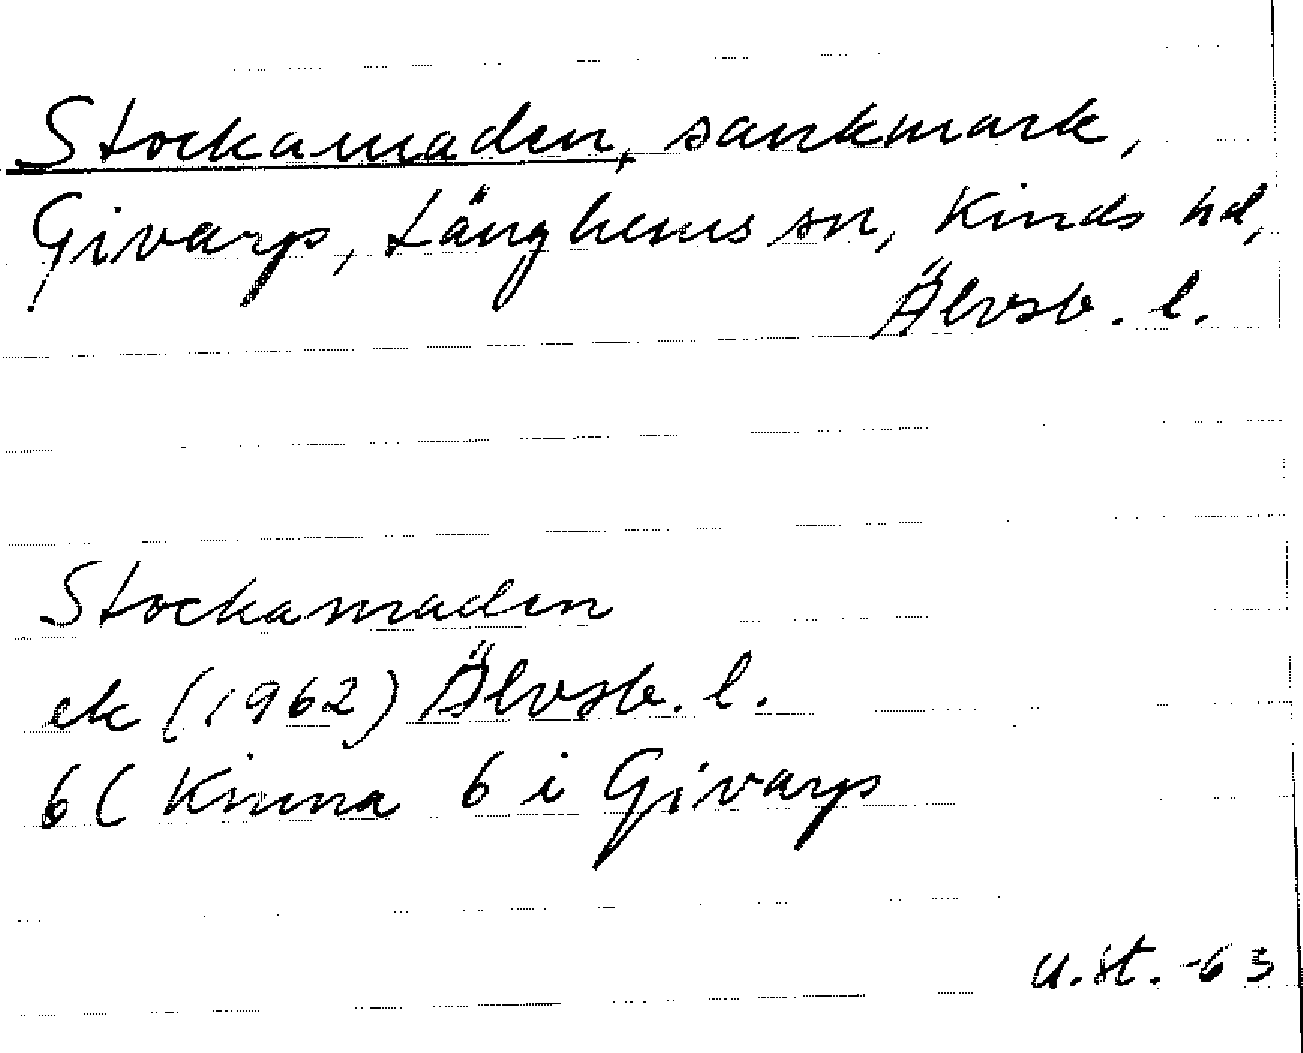 Stockamaden, sankmark,
Givarp, Länghems sn, Kinds hd,
Älvsb. l.
Stockamaden
ek (1962) Älvsb. l.
6 ( Kinna 6 i Givarp
U.St. -63